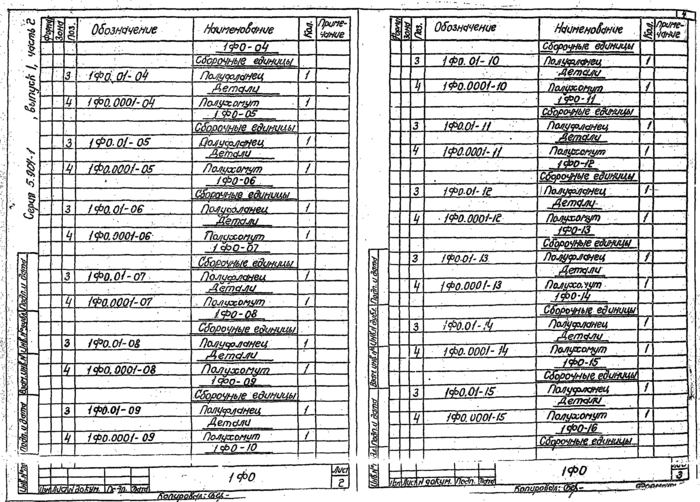 Серия 5.904-1 , выпуск 1, часть 2
Зона Поз. Обозначение Наименование Кол. Приме-чание
1ФО-04
Сборочные единицы
3 1ФО.01-04 Полуфланец 1
Детали
4 1ФО.0001-04 Полухомут 1
1ФО-05
Сборочные единицы
3 1ФО.01-05 Полуфланец 1
Детали
4 1ФО.0001-05 Полухомут 1
1ФО-06
Сборочные единицы
3 1ФО.01-06 Полуфланец 1
Детали
4 1ФО.0001-06 Полухомут 1
1ФО-07
Сборочные единицы
3 1ФО.01-07 Полуфланец 1
Детали
4 1ФО.0001-07 Полухомут 1
1ФО-08
Сборочные единицы
3 1ФО.01-08 Полуфланец 1
Детали
4 1ФО.0001-08 Полухомут 1
1ФО-09
Сборочные единицы
3 1ФО.01-09 Полуфланец 1
Детали
4 1ФО.0001-09 Полухомут 1
1ФО-10
Подп. и дата
Подп. и дата
1ФО
Лист
2
докум. Подп. Дата
Копировал:
4
Зона Поз. Обозначение Наименование Кол. Приме-чание
Сборочные единицы
3 1ФО.01-10 Полуфланец 1
Детали
4 1ФО.0001-10 Полухомут 1
1ФО-11
Сборочные единицы
3 1ФО.01-11 Полуфланец 1
Детали
4 1ФО.0001-11 Полухомут 1
1ФО-12
Сборочные единицы
3 1ФО.01-12 Полуфланец 1
Детали
4 1ФО.0001-12 Полухомут 1
1ФО-13
Сборочные единицы
3 1ФО.01-13 Полуфланец 1
Детали
4 1ФО.0001-13 Полухомут 1
1ФО-14
Сборочные единицы
3 1ФО.01-14 Полуфланец 1
Детали
4 1ФО.0001-14 Полухомут 1
1ФО-15
Сборочные единицы
3 1ФО.01-15 Полуфланец 1
Детали
4 1ФО.0001-15 Полухомут 1
1ФО-16
Сборочные единицы
Подп. и дата
Подп. и дата
1ФО
3
докум. Подп. Дата
Копировал:
Формат